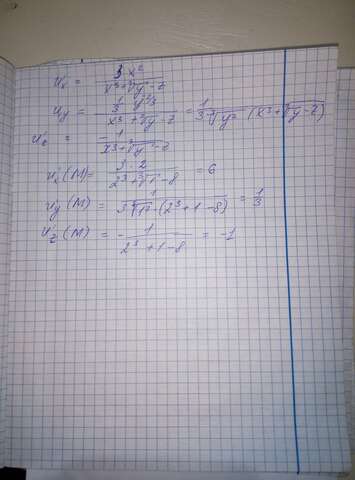 u'x = 3·x² / (x³+∛y - z)
u'y = (1/3 y^(-2/3)) / (x³+∛y - z) = 1 / (3·∛y² (x³+∛y - z))
u'z = - 1 / (x³+∛y - z)
u'x (M) = 3·2 / (2³+∛1 - 8) = 6
u'y (M) = 1 / (3∛1²·(2³+1-8)) = 1/3
u'z (M) = - 1 / (2³+1-8) = -1